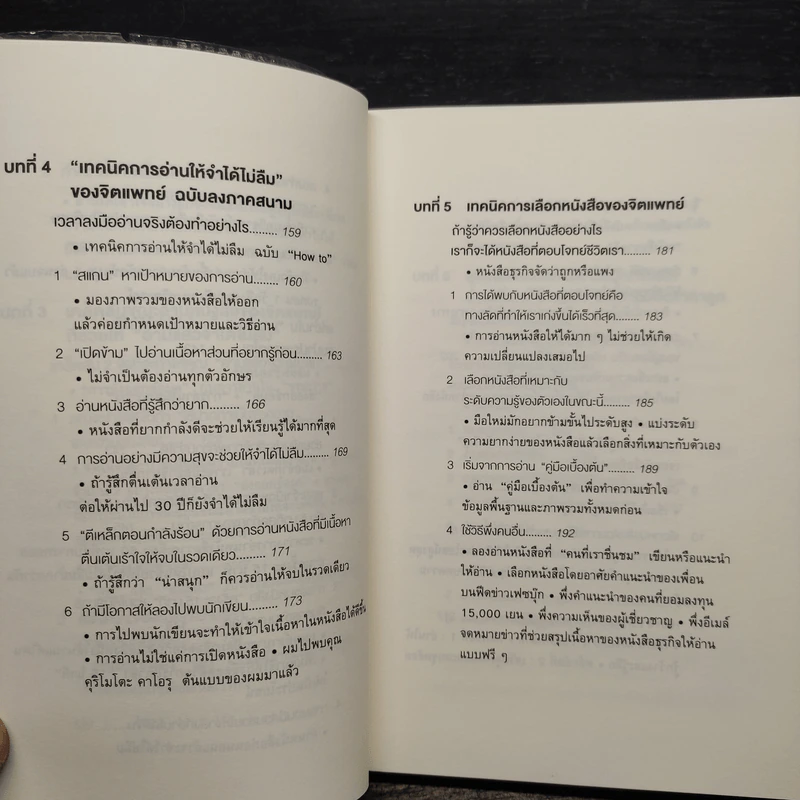 บทที่ 4 “เทคนิคการอ่านให้จำได้ไม่ลืม”
ของจิตแพทย์ ฉบับลงภาคสนาม
เวลาลงมืออ่านจริงต้องทำอย่างไร......... 159
• เทคนิคการอ่านให้จำได้ไม่ลืม ฉบับ “How to”
1 “สแกน” หาเป้าหมายของการอ่าน......... 160
• มองภาพรวมของหนังสือให้ออก
แล้วค่อยกำหนดเป้าหมายและวิธีอ่าน
2 “เปิดข้าม” ไปอ่านเนื้อหาส่วนที่อยากรู้ก่อน......... 163
• ไม่จำเป็นต้องอ่านทุกตัวอักษร
3 อ่านหนังสือที่รู้สึกว่ายาก......... 166
• หนังสือที่ยากกำลังดีจะช่วยให้เรียนรู้ได้มากที่สุด
4 การอ่านอย่างมีความสุขจะช่วยให้จำได้ไม่ลืม......... 169
• ถ้ารู้สึกตื่นเต้นเวลาอ่าน
ต่อให้ผ่านไป 30 ปีก็ยังจำได้ไม่ลืม
5 “ตีเหล็กตอนกำลังร้อน” ด้วยการอ่านหนังสือที่มีเนื้อหา
ตื่นเต้นเร้าใจให้จบในรวดเดียว......... 171
• ถ้ารู้สึกว่า “น่าสนุก” ก็ควรอ่านให้จบในรวดเดียว
6 ถ้ามีโอกาสให้ลองไปพบนักเขียน......... 173
• การไปพบนักเขียนจะทำให้เข้าใจเนื้อหาในหนังสือได้ดีขึ้น
• การอ่านไม่ใช่แค่การเปิดหนังสือ • ผมไปพบคุณ
คุริโมโตะ คาโอรุ ต้นแบบของผมมาแล้ว
บทที่ 5 เทคนิคการเลือกหนังสือของจิตแพทย์
ถ้ารู้ว่าควรเลือกหนังสืออย่างไร
เราก็จะได้หนังสือที่ตอบโจทย์ชีวิตเรา......... 181
• หนังสือธุรกิจจัดว่าถูกหรือแพง
1 การได้พบกับหนังสือที่ตอบโจทย์คือ
ทางลัดที่ทำให้เราเก่งขึ้นได้เร็วที่สุด......... 183
• การอ่านหนังสือให้ได้มาก ๆ ไม่ช่วยให้เกิด
ความเปลี่ยนแปลงเสมอไป
2 เลือกหนังสือที่เหมาะกับ
ระดับความรู้ของตัวเองในขณะนี้......... 185
• มือใหม่มักอยากข้ามขั้นไประดับสูง • แบ่งระดับ
ความยากง่ายของหนังสือแล้วเลือกสิ่งที่เหมาะกับตัวเอง
3 เริ่มจากการอ่าน “คู่มือเบื้องต้น”......... 189
• อ่าน “คู่มือเบื้องต้น” เพื่อทำความเข้าใจ
ข้อมูลพื้นฐานและภาพรวมทั้งหมดก่อน
4 ใช้วิธีพึ่งคนอื่น......... 192
• ลองอ่านหนังสือที่ “คนที่เราชื่นชม” เขียนหรือแนะนำ
ให้อ่าน • เลือกหนังสือโดยอาศัยคำแนะนำของเพื่อน
บนฟีดข่าวเฟซบุ๊ก • พึ่งคำแนะนำของคนที่ยอมลงทุน
15,000 เยน • พึ่งความเห็นของผู้เชี่ยวชาญ • พึ่งอีเมล์
จดหมายข่าวที่ช่วยสรุปเนื้อหาของหนังสือธุรกิจให้อ่าน
แบบฟรี ๆ